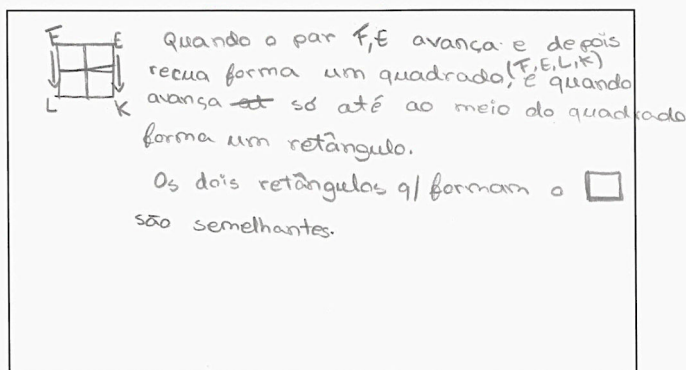 F E
L K
Quando o par F,E avança e depois
recua forma um quadrado, (F,E,L,K) e quando
avança só até ao meio do quadrado
forma um retângulo.
Os dois retângulos q/ formam o
são semelhantes.